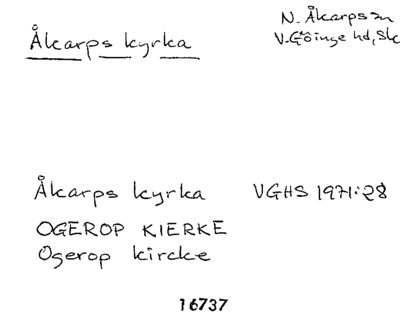 Åkarps kyrka
N. Åkarps sn
V. Göinge hd, Sk
Åkarps kyrka VGHS 1971:28
OGEROP KIERKE
Ogerop kircke
16737